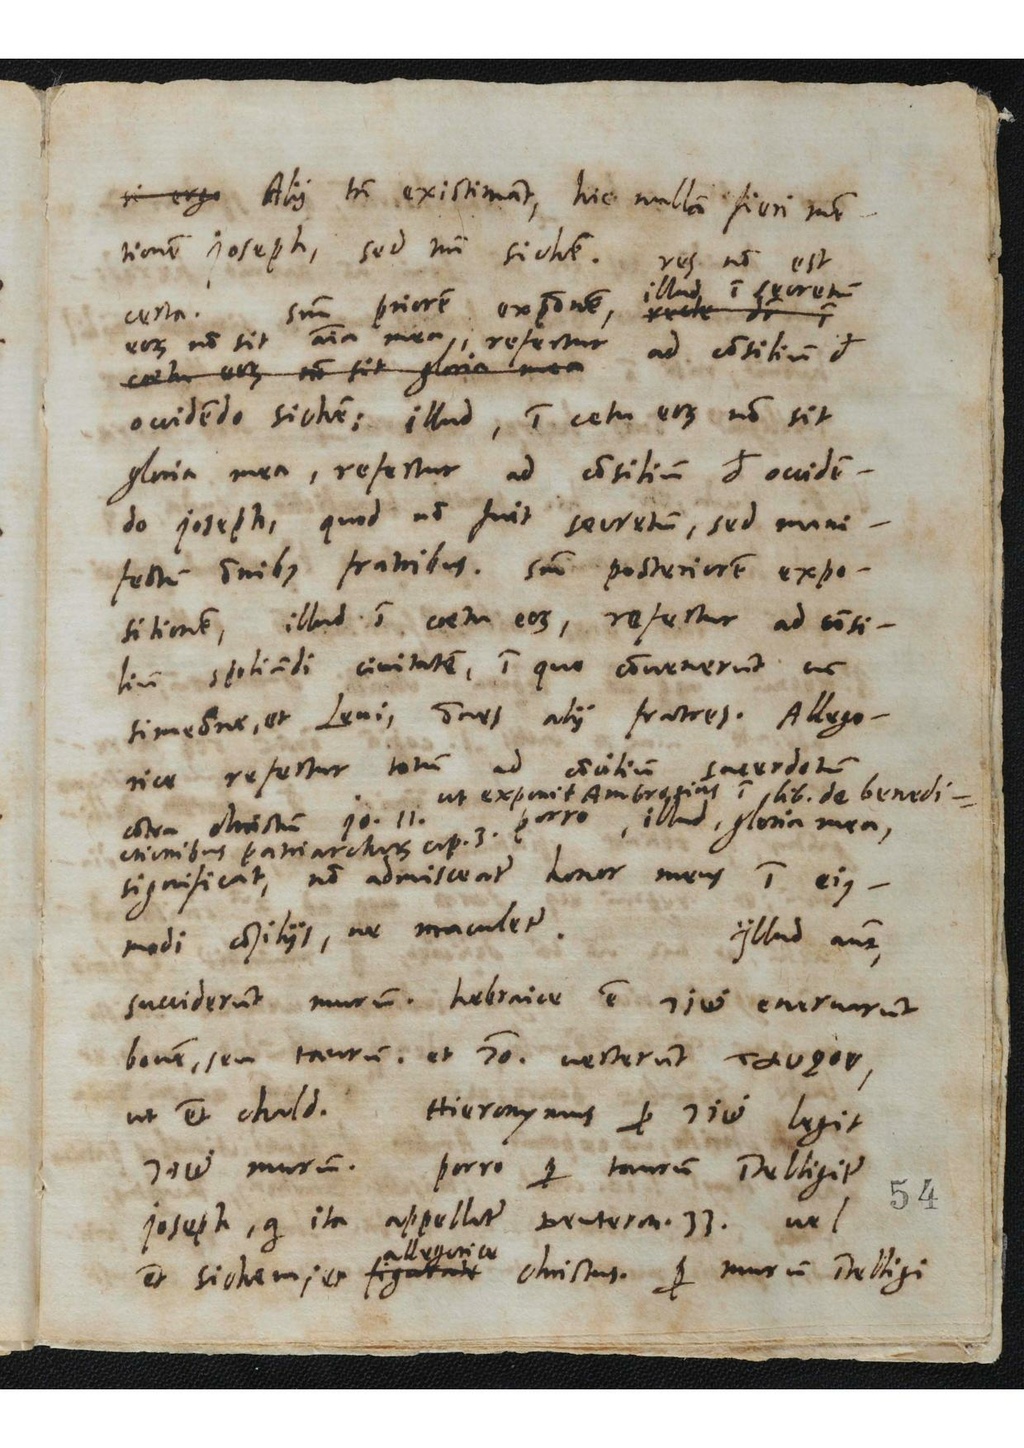 ~~si ergo~~ Alij tñ existimãt, hic nullã fieri mẽ-
tionẽ joseph, sed tm̃ sichẽ. res nõ est
certa. scm̃ priorẽ expõnẽ, illud ĩ secretũ
~~recte dr̃ ĩ~~
eoꝝ nõ sit aĩa mea, refertur ad cõsiliũ đ
~~coetu eoꝝ nõ sit gloria mea~~
occidẽdo sichẽ; illud, ĩ cetu eoꝝ nõ sit
gloria mea, refertur ad cõsiliũ đ occidẽ-
do joseph, quod nõ fuit secretũ, sed mani-
festũ õnibꝫ fratribus. scm̃ posteriorẽ expo-
sitionẽ, illud ĩ coetu eoꝝ, refertur ad cõsi-
liũ spoliãdi civitatẽ, ĩ quo cõvenerũt cũ
simeõne, et Levi, õnes alij fratres. Allego-
rice refertur totũ ad cõciliũ sacerdotũ
cõtra christũ jo. 11. ut exponit Ambrosius ĩ lib. de benedi-
ctionibus patriarcharꝝ cap. 3. porro, illud, gloria mea,
significat, nõ admisceatr̃ honor meus ĩ eiꝯ-
modi cõsilijs, ne maculetr̃. jllud aũt,
succiderũt murũ. hebraice ẽ שור enervarũt
bovẽ, seu taurũ. et 70. verterũt ταυρον,
ut ẽt chald. Hieronymus ꝓ שור legit
שור murũ. porro ꝑ taurũ ĩtelligitr̃
joseph, q ita appellatr̃ Deuteron. 33. vel
ẽt sichem, et allegorice ~~figurate~~ christus. ꝑ murũ ĩtelligi
54